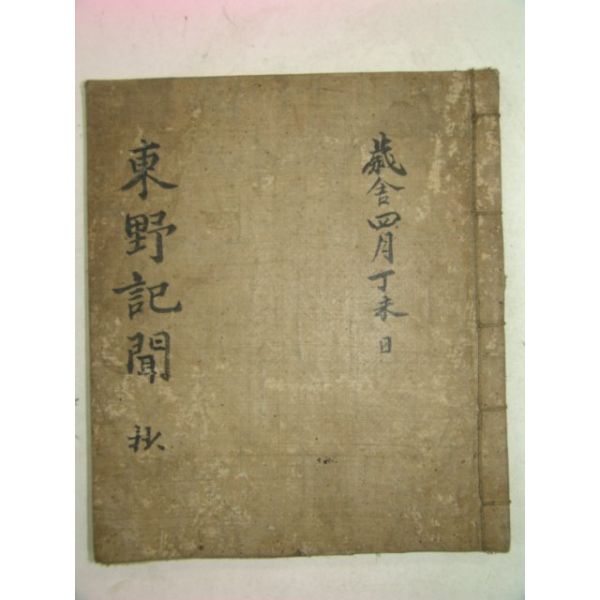 歲舍四月丁未日
東野記聞 秋